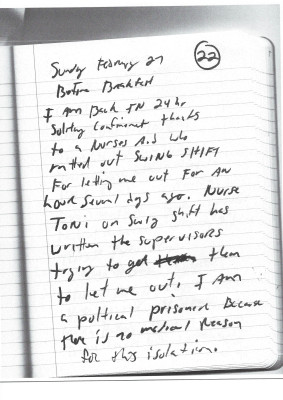 Sunday February 27
22
Before Breakfast
I Am Back IN 24 hr
Solitary Confinement thanks
to a Nurses Aid who
ratted out SWING SHIFT
For letting me out For AN
hour several days ago. Nurse
TONI on Swing shift has
written the supervisors
trying to get them
to let me out. I Am
a political prisoner Because
there is no medical Reason
for this isolation.